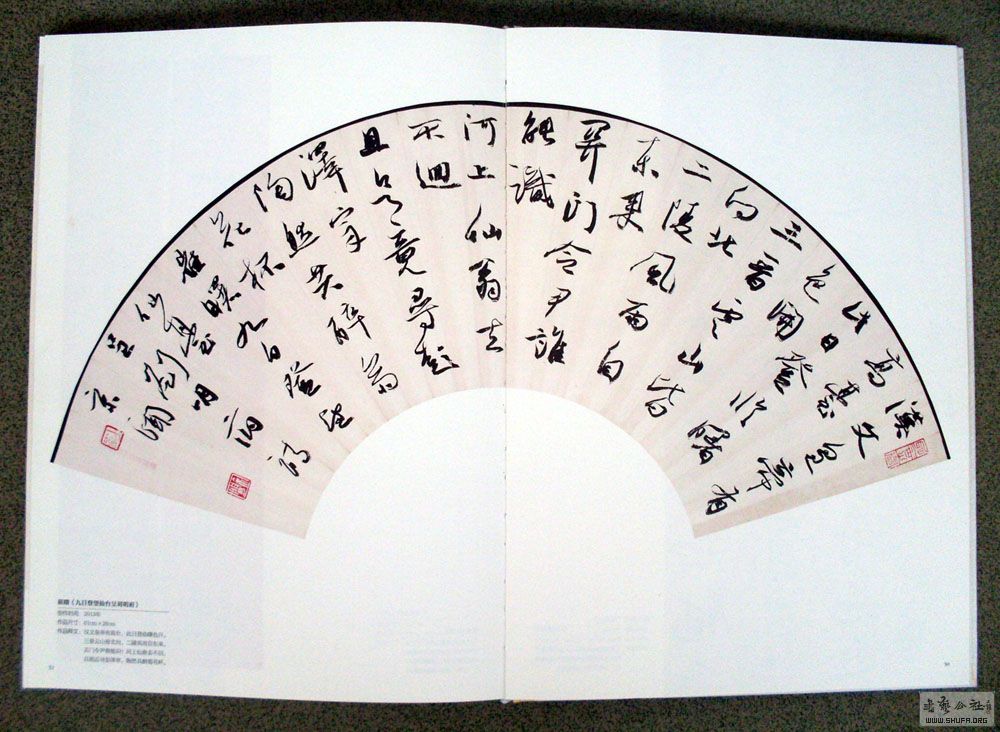 漢文皇帝有
高臺
此日登臨曙
色開
三晉雲山皆
向北
二陵風雨自
東來
關門令尹誰
能識
河上仙翁去
不迴
且欲竟尋彭
澤宰
陶然共醉菊
花杯
崔曙九日登望
仙臺
劉明府
崔曙《九日登望仙台呈刘明府》
创作时间：2013年
作品尺寸：61cm×28cm
作品释文：汉文皇帝有高台，此日登临曙色开。
三晋云山皆北向，二陵风雨自东来。
关门令尹谁能识？河上仙翁去不回。
且欲近寻彭泽宰，陶然共醉菊花杯。
WWW.SHUFA.ORG